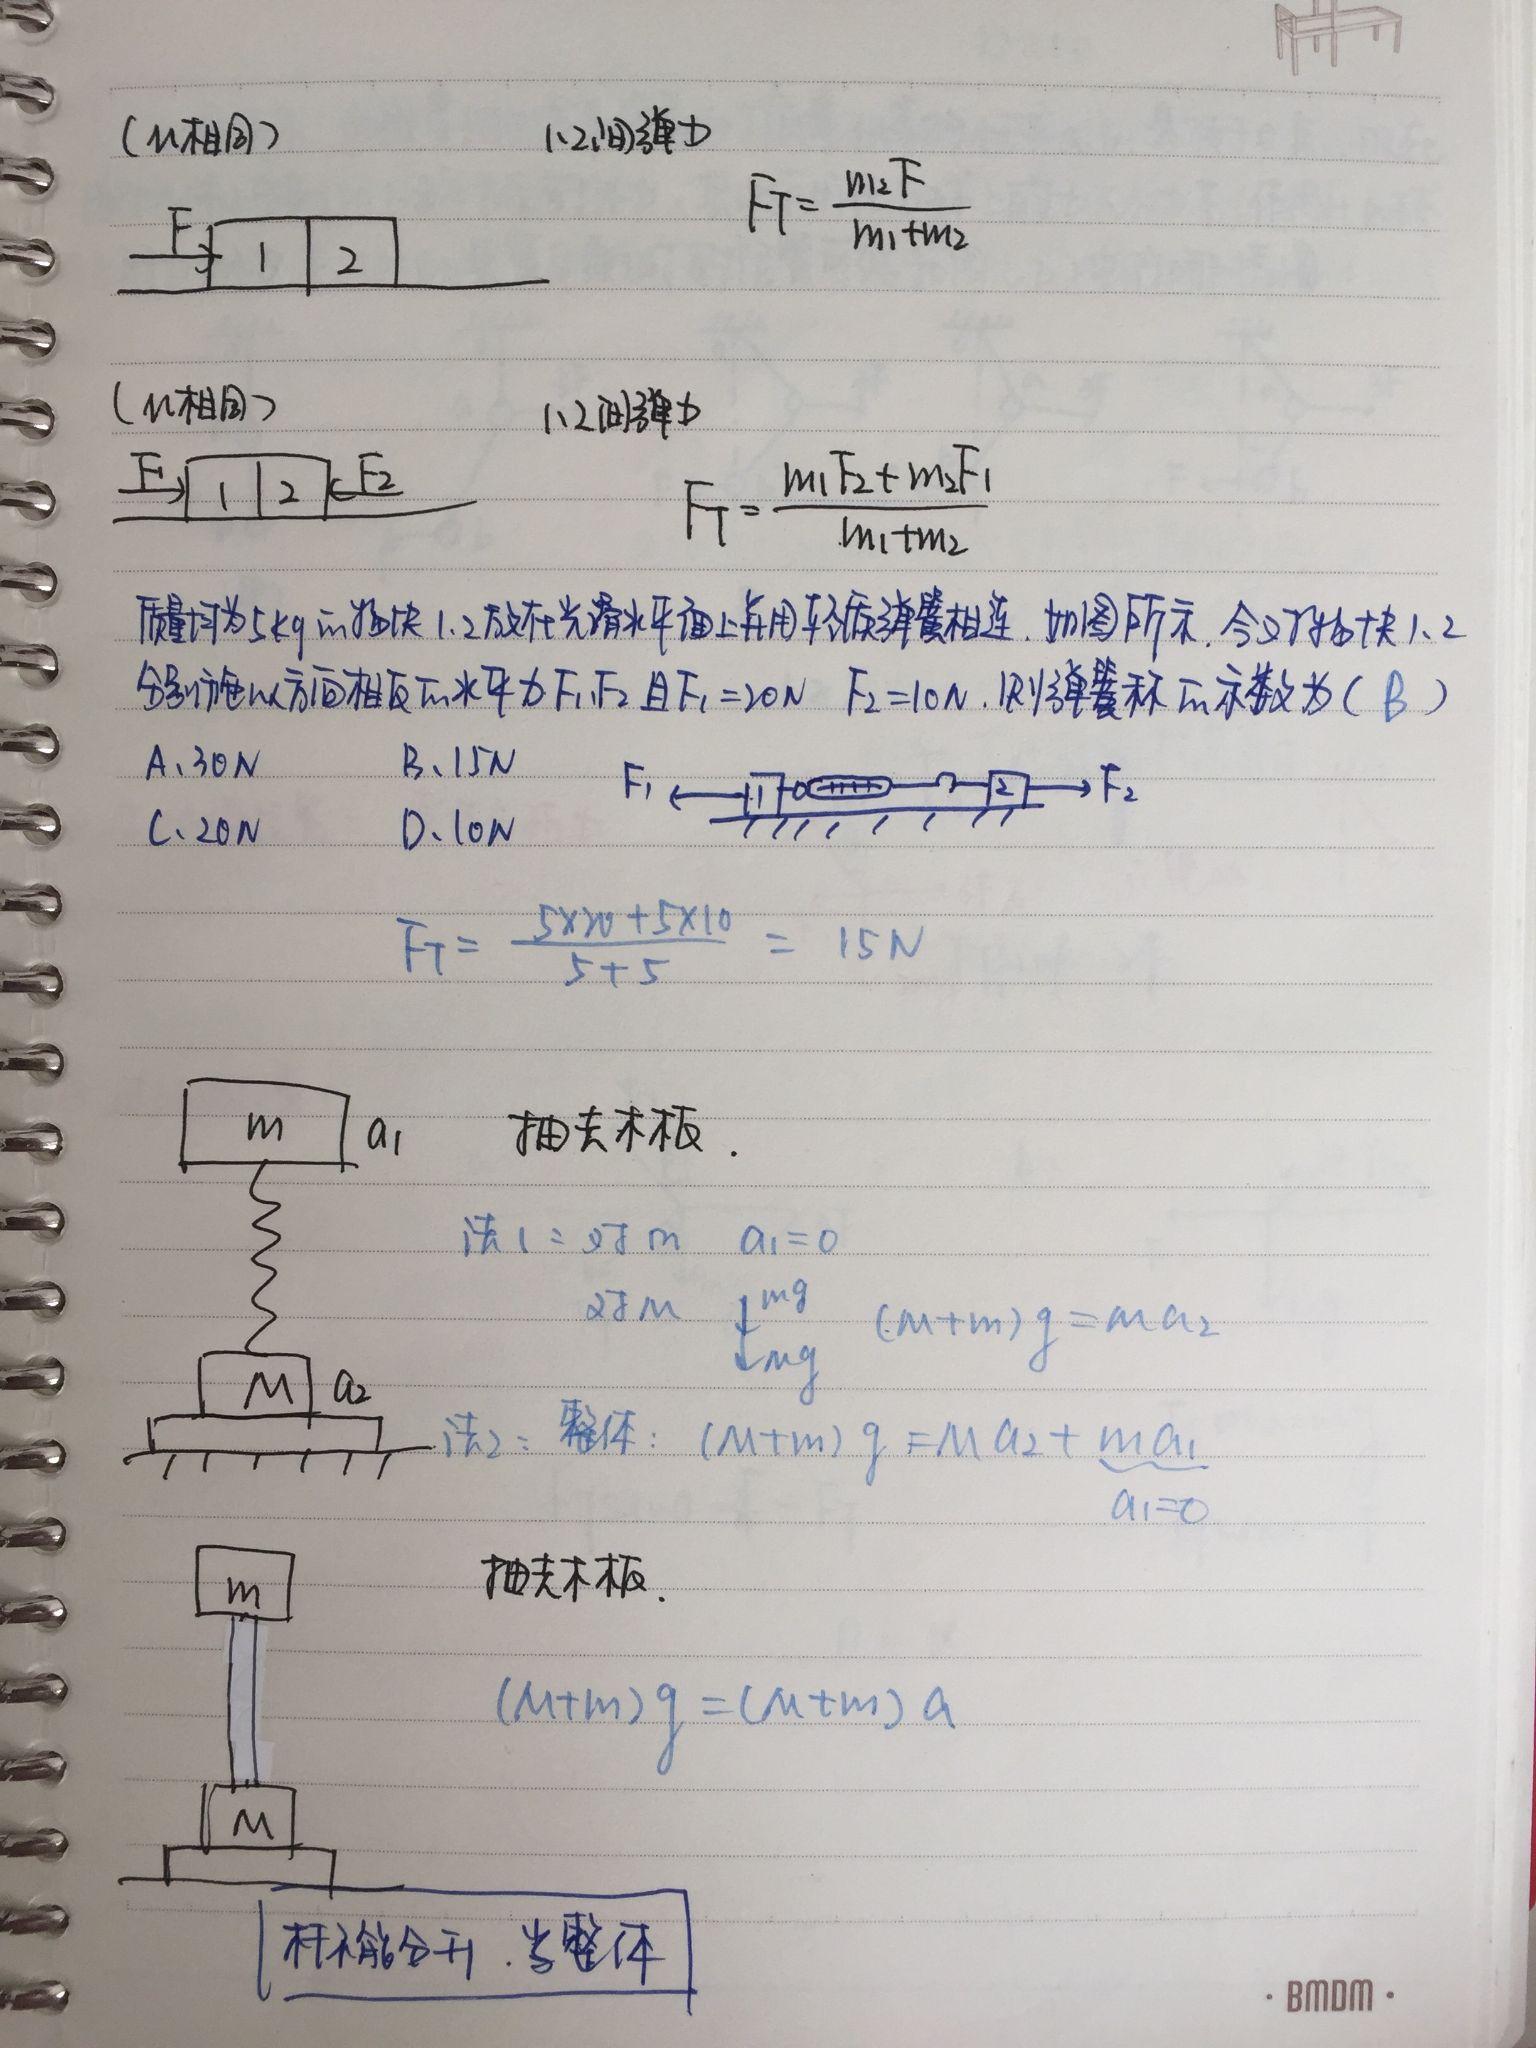 (μ相同)
1、2间弹力
F_T = \frac{m_2F}{m_1+m_2}
F
1 2
(μ相同)
1、2间弹力
F_1 1 2 F_2
F_T = \frac{m_1F_2+m_2F_1}{m_1+m_2}
质量均为5kg的物块1、2放在光滑水平面上并用轻质弹簧相连.如图所示.今对物块1、2
分别施以方向相反的水平力F_1、F_2 且F_1=20N F_2=10N.则弹簧称的示数为(B)
A、30N B、15N
F_1 1 2 F_2
C、20N D、10N
F_T = \frac{5×20+5×10}{5+5} = 15N
m a_1 抽去木板.
法1:对m a_1=0
对M mg (M+m)g=Ma_2
Mg
M a_2
法2:整体:(M+m)g=Ma_2+ma_1
a_1=0
m 抽去木板.
(M+m)g=(M+m)a
M
杆不能分开.当整体
· BMDM ·